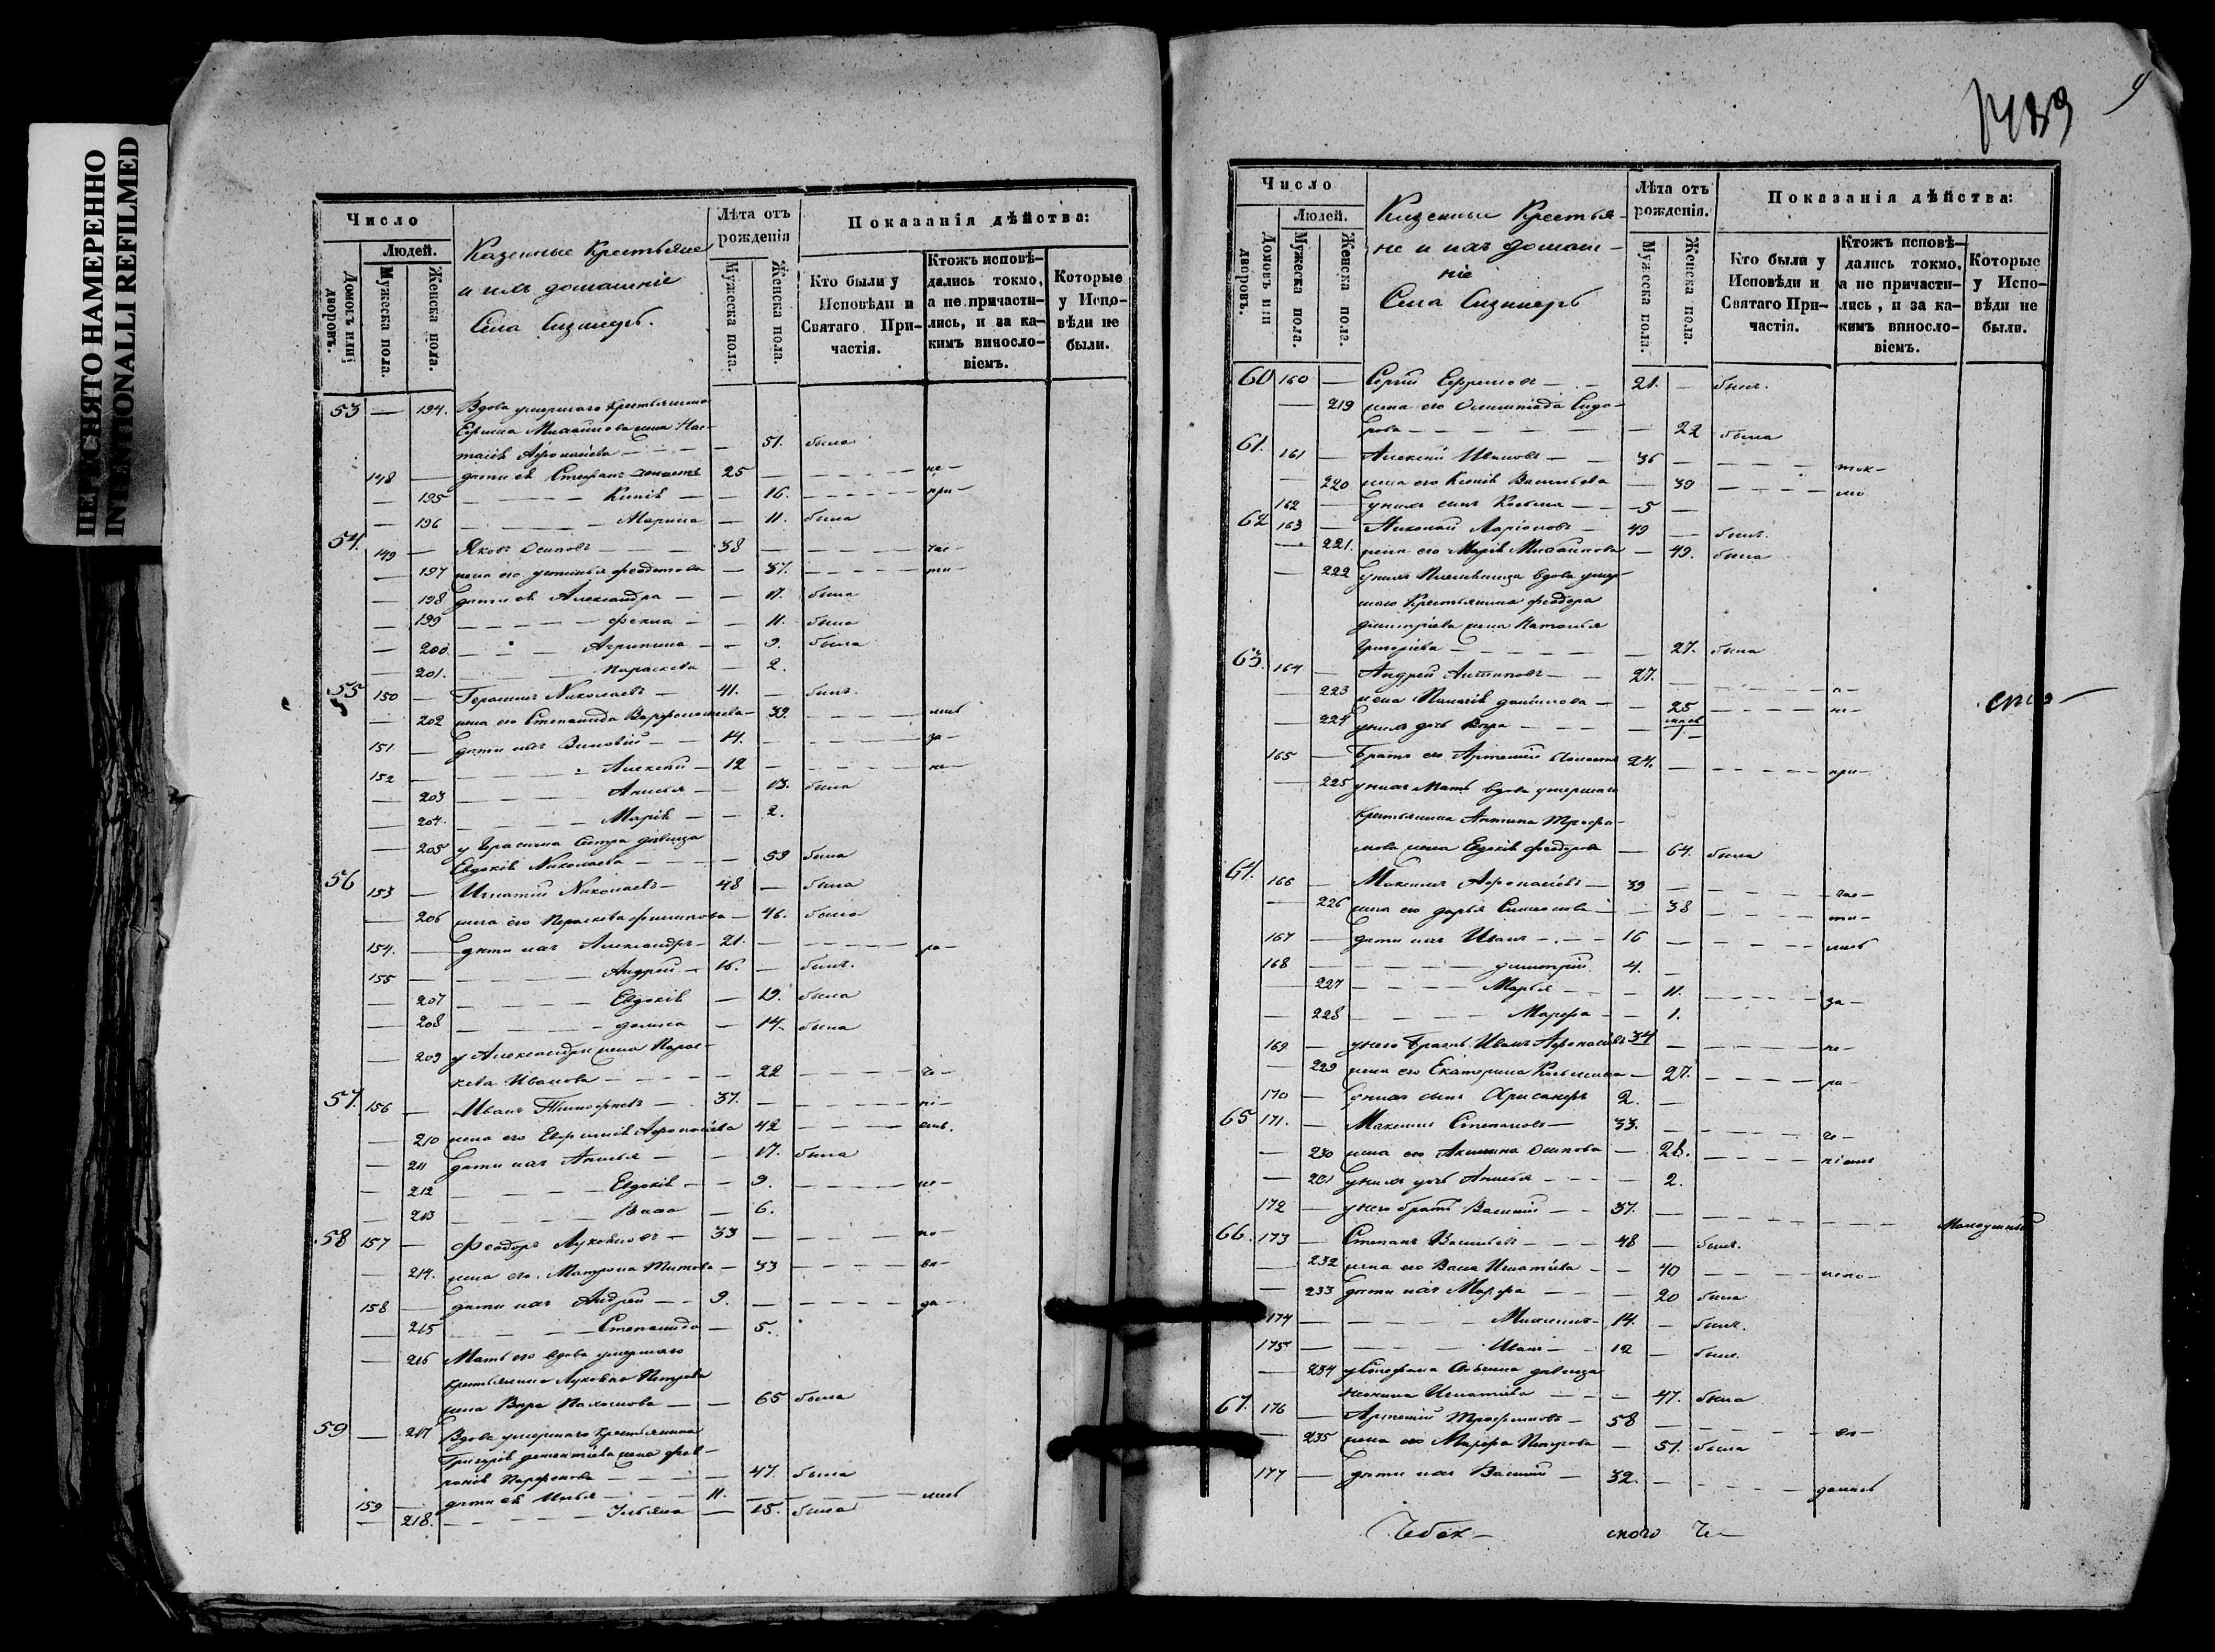 ПЕРЕСНЯТО НАМЕРЕННО
INTENTIONALLI REFILMED
Число
Людей.
Домовъ или дворовъ.
Мужеска пола.
Женска пола.
Казенные Крестьяне
и ихъ домашніе
Села
Лѣта отъ рожденія
Мужеска пола.
Женска пола.
Показанія дѣйства:
Кто были у Исповѣди и Святаго Причастія.
Ктожъ исповѣ-
дались токмо,
а не причасти-
лись, и за ка-
кимъ винослo-
віемъ.
Которые
у Испо-
вѣди не
были.
53 — 194. Вдова умершаго Крестьянина
Ефрема Михайлова жена Нас-
тасія Афонасіева — 51. была
148 — дѣти ея Стефанъ 25 — не-
— 195 Ксенія — 16. при-
— 196 Марина — 11. была
54. 149 — Яковъ Осиповъ — 38 — час-
— 197 жена его Устинья Феодотова — 37. ти-
— 198 дѣти ея Александра — 17. была
— 199 Фекла — 11. была
— 200 Агрипина — 9. была
— 201. Параскева — 2.
55 150 — Герасимъ Николаевъ — 41. — былъ.
— 202 жена его Степанида Варфоломеева — 39. лись
151 — дѣти ихъ Зиновій — 14. за-
152 — Алексей — 12 — не-
— 203 Анисья — 13. была
— 204. Марія — 2.
— 205 у Герасима Сестра дѣвица
Евдокія Николаева — 59 была
56 153 — Игнатій Николаевъ — 48 — была
— 206 жена его Параскева Филипова — 46. была
154. — дѣти ихъ Александръ — 21. — ра-
155 — Андрей — 16. — былъ.
— 207 Евдокія — 19. была
— 208 Домна — 14. была
— 209 у Александра жена Парас-
кева Иванова — 22 че-
57. 156 — Иванъ Тимофеевъ — 37. ні-
— 210 жена его Евфимія Афонасіева 42 емъ.
— 211 дѣти ихъ Анисья — 17. была
— 212 Евдокія — 9. не-
— 213 Васса — 6.
58 157 — Феодоръ Лукояновъ — 33 по-
— 214. жена его Матрона Титова — 33
158 — дѣти ихъ Андрей — 9. да-
— 215 Степанида — 5.
— 216 Мать его вдова умершаго
крестьянина Лукояна Петрова
жена Вера Пахомова — 65 была
59 — 217 Вдова умершаго крестьянина
Григорія Дементіева жена Фев-
ронія Парфенова — 47. была
159 — дѣти ея Илья — 11. лись
— 218. Ульяна — 15. была
Число
Людей.
Домовъ или дворовъ.
Мужеска пола.
Женска пола.
Казенныи Крестья-
не и ихъ домаш-
ніе
Села
Лѣта отъ рожденія.
Мужеска пола.
Женска пола.
Показанія дѣйства:
Кто были у Исповѣди и Святаго Причастія.
Ктожъ исповѣ-
дались токмо,
а не причасти-
лись, и за ка-
кимъ винослo-
віемъ.
Которые
у Испо-
вѣди не
были.
60 160 — Сергій Ефремовъ — 21. — былъ.
— 219 жена его Олимпіада Сидо-
рова — 22 была
61. 161 — Алексей Ивановъ — 36 — ток-
— 220 жена его Ксенія Васильева — 39 мо
162 — у нихъ сынъ Косьма — 5 —
62 163 — Николай Ларіоновъ — 49 — былъ.
— 221. жена его Марія Михайлова — 49. была
— 222 у нихъ Племянница вдова умер-
шаго Крестьянина Феодора
Димитріева жена Наталья
Григорьева — 27. была
63. 164 — Андрей Антиповъ — 27. —
— 223 жена Пелагія Данилова — 25
— 224 у нихъ дочь Вера — 1 —
165 — Братъ его Артемій 24. — при-
— 225 у нихъ Мать вдова умершаго
Крестьянина Антипа Трофи-
мова жена Евдокія Феодорова — 64. была
64. 166 — Максимъ Афонасіевъ — 39 — час-
— 226 жена его Дарья Симеонова — 38 ти-
167 — дѣти ихъ Иванъ — 16 — лись
168 — Димитрій 4. —
— 227 Марья — 11. за-
— 228 Марфа — 1.
169 — у него Братъ Иванъ Афонасіевъ 34 — не-
— 229 жена его Екатерина Козьмина — 27. ра-
170 — у нихъ сынъ Хрисанфъ 2. —
65 171. — Максимъ Степановъ — 33. че-
— 230 жена его Акилина Осипова — 28. ніемъ
— 231 у нихъ дочь Анисья — 2.
172 — у него братъ Василій — 37. —
66. 173 — Степанъ Васильевъ — 48 — былъ.
— 232 жена его Васса Игнатіева — 40
— 233 дѣти ихъ Марфа — 20 была
174 — 14. — былъ.
175 — Иванъ — 12 — былъ.
— 234 у Стефана дѣвица
Игнатіева — 47. была
67. 176 — Артемій Трофимовъ — 58 —
— 235 жена его Марфа Петрова — 51. была
177 — дѣти ихъ Василій — 32. — дались
Чебок- скаго